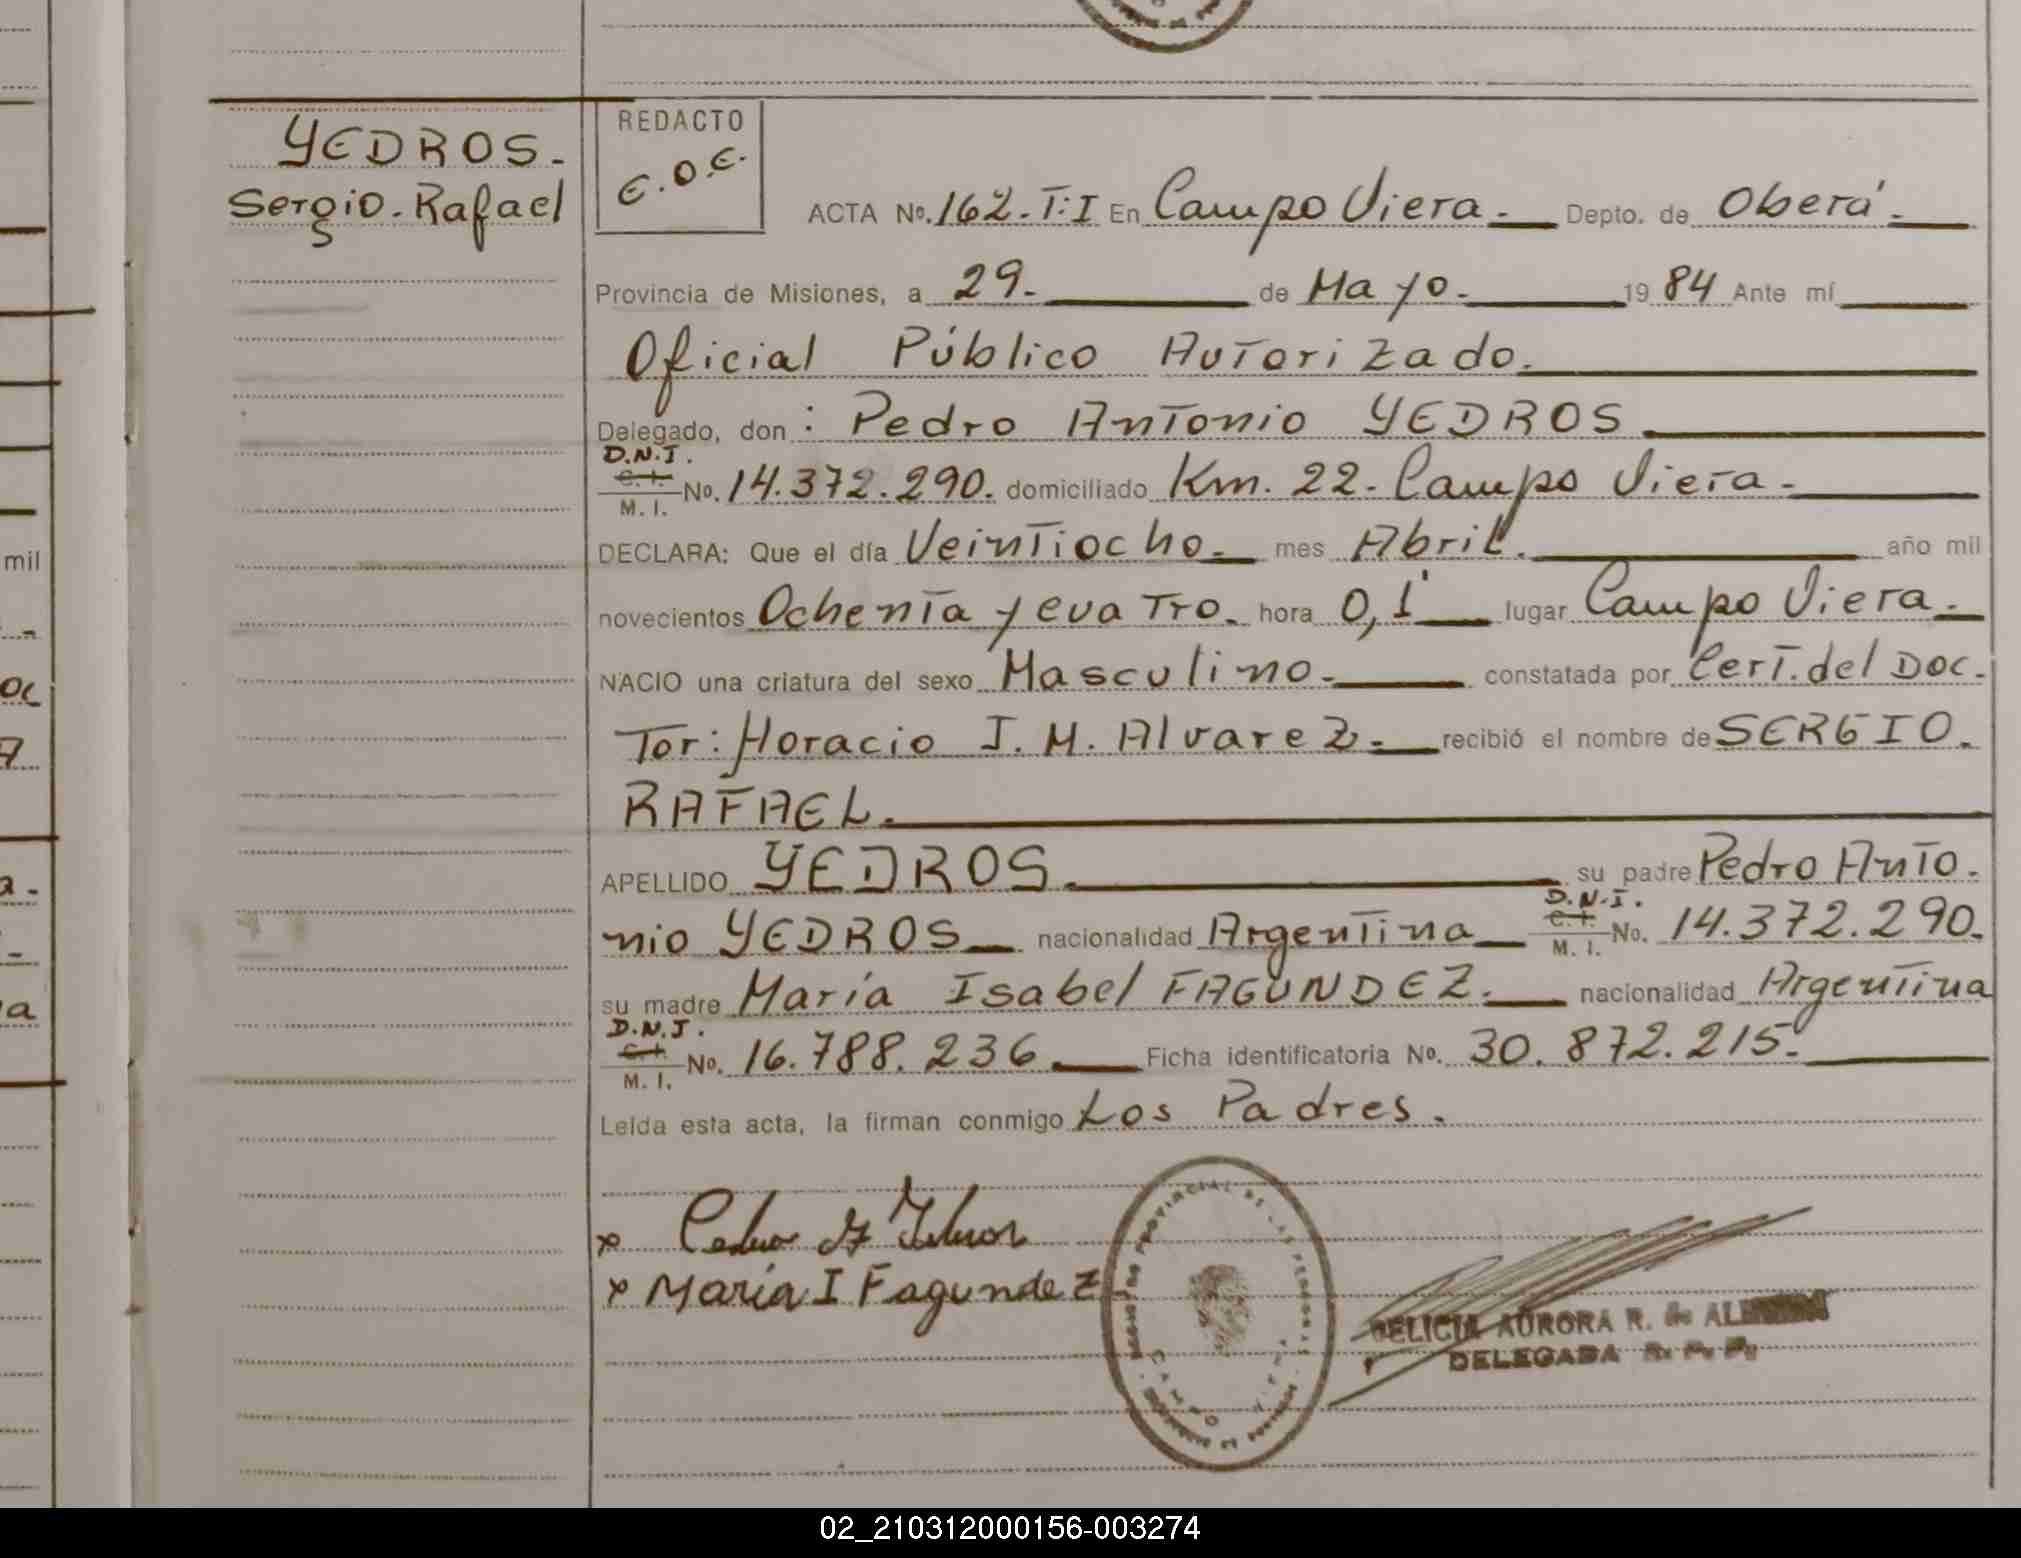 YEDROS.
Sergio. Rafael
REDACTO
E.O.E.
ACTA No. 162. T: I En Campo Viera. Depto. de Oberá.
Provincia de Misiones, a 29. de Mayo. 1984 Ante mí
Oficial Público Autorizado.
Delegado, don : Pedro Antonio YEDROS
D.N.I.
C. I.
M. I.
No. 14.372.290. domiciliado Km. 22. Campo Viera.
DECLARA: Que el día Veintiocho. mes Abril. año mil
novecientos Ochenta y cuatro. hora 0,1 lugar Campo Viera.
NACIO una criatura del sexo Masculino. constatada por Cert. del Doc.
tor: Horacio J. M. Alvarez. recibió el nombre de SERGIO.
RAFAEL.
APELLIDO YEDROS. su padre Pedro Anto.
nio YEDROS nacionalidad Argentina D.N.I. C. I. M. I. No. 14.372.290.
su madre María Isabel FAGUNDEZ. nacionalidad Argentina
D.N.I.
C. I.
M. I.
No. 16.788.236 Ficha identificatoria No. 30.872.215.
Leída esta acta, la firman conmigo Los Padres.
x Pedro A
x María I Fagundez
PROVINCIAL DE LAS PERSONAS
CAMPO
FELICIA AURORA R. de
DELEGADA R. P. P.
mil
02_210312000156-003274